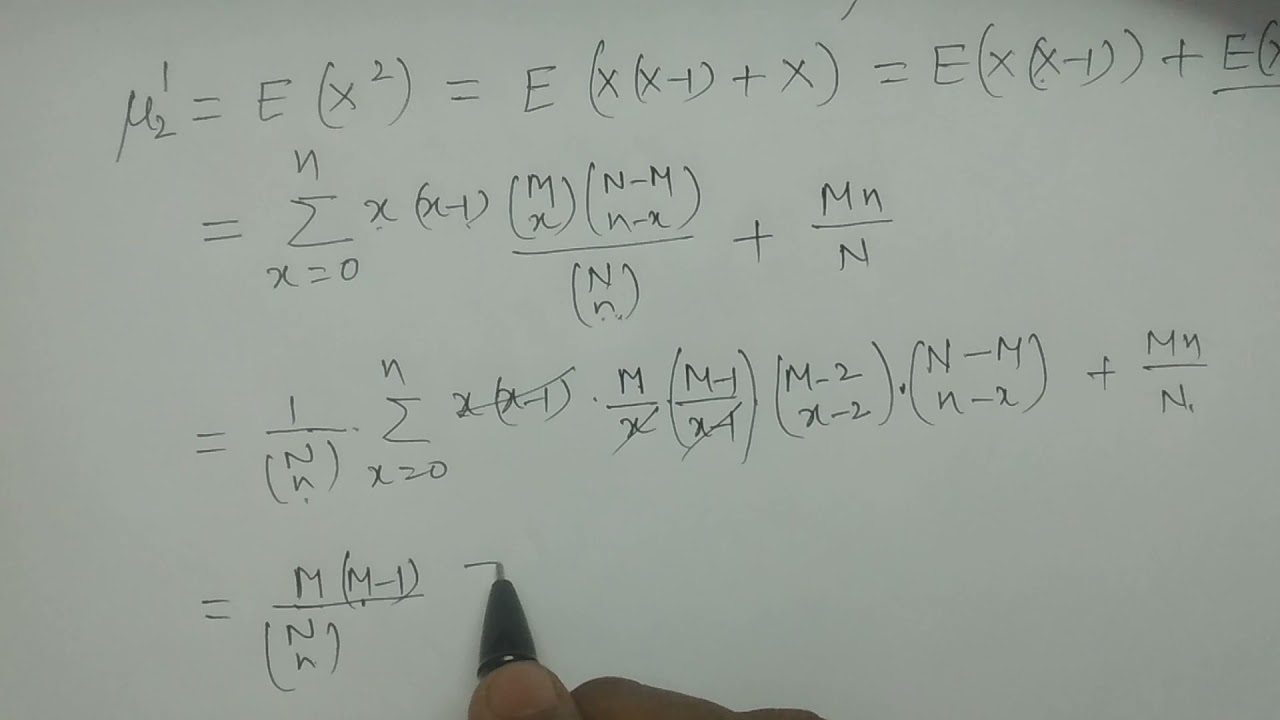 μ₂′ = E(X²) = E(X(X-1) + X) = E(X(X-1)) + E(X
= Σ_{x=0}^{n} x(x-1) \frac{\binom{M}{x}\binom{N-M}{n-x}}{\binom{N}{n}} + \frac{Mn}{N}
= \frac{1}{\binom{N}{n}} · Σ_{x=0}^{n} x(x-1) · \frac{M}{x} \left(\frac{M-1}{x-1}\right) \binom{M-2}{x-2} · \binom{N-M}{n-x} + \frac{Mn}{N}
= \frac{M(M-1)}{\binom{N}{n}}